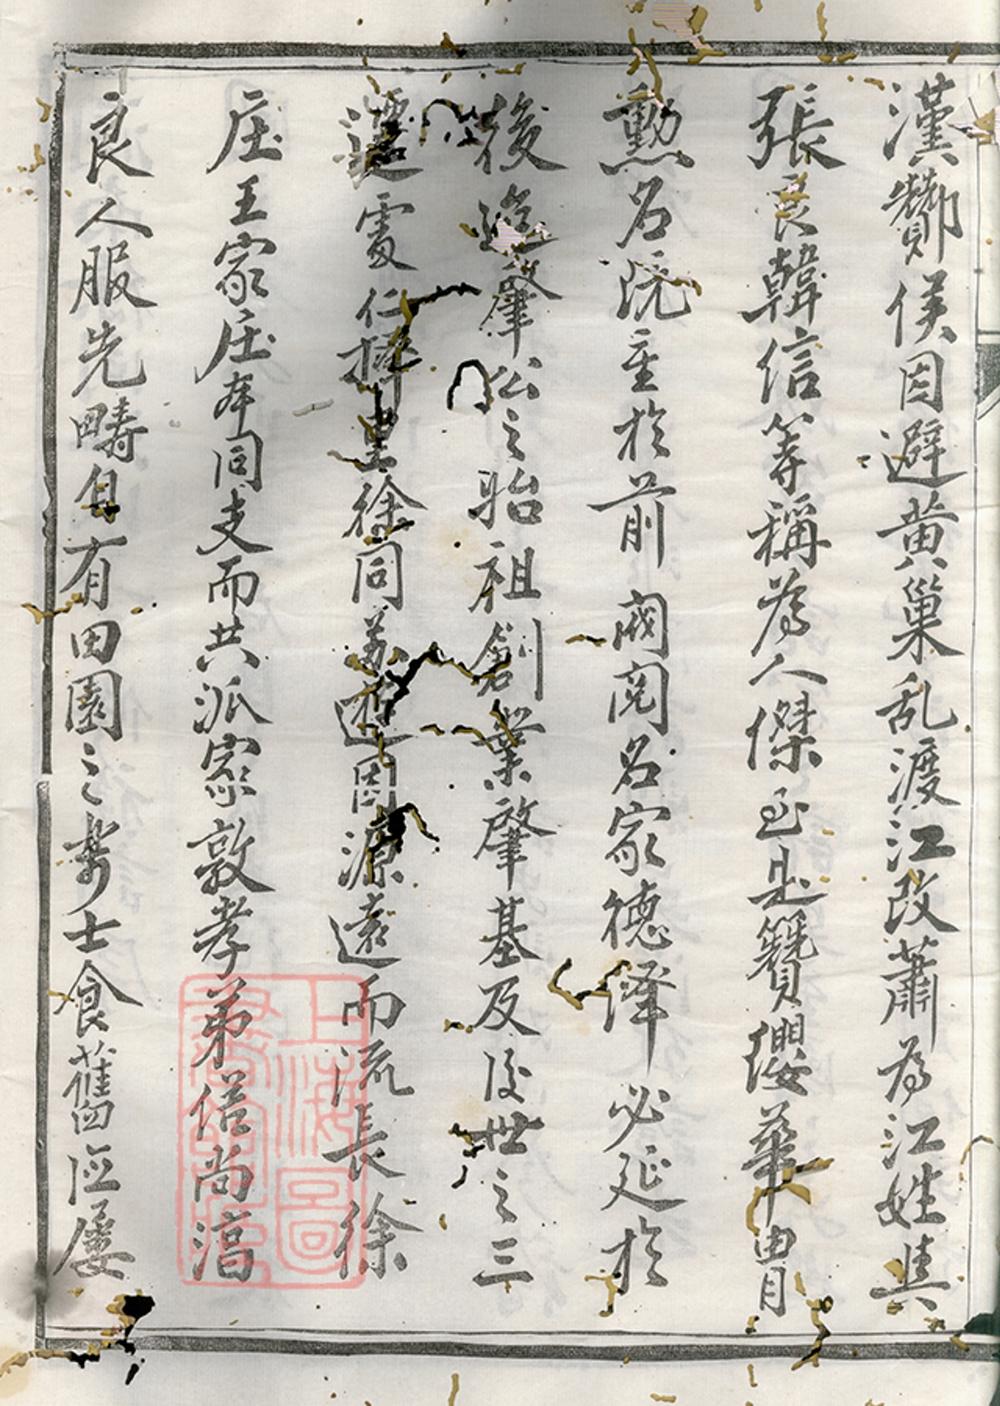 漢酇侯因避黄巢乱渡江改蕭為江姓其
張良韓信等稱為人傑至是簪纓華胄
勲名既重於前閥閲名家德澤必延於
後迨肇公之貽祖創業肇基及後世之三
遷處仁擇里徐同並遊因源遠而流長徐
庄王家庄本同支而共派家敦孝弟俗尚淳
良人服先疇自有田園之樂士食舊德屢
上海圖書館藏